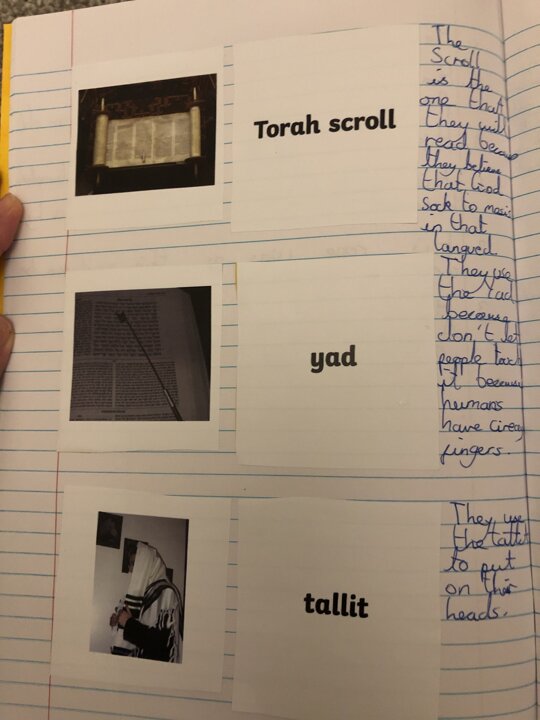 Torah scroll
The
Scroll
is the
one that
they will
read because
they believe
that God
Sock to
in that
langued.
yad
They use
the Yad
because
don't let
people touch
it because
humans
have
fingers.
tallit
They use
the tallit
to put
on their
heads.